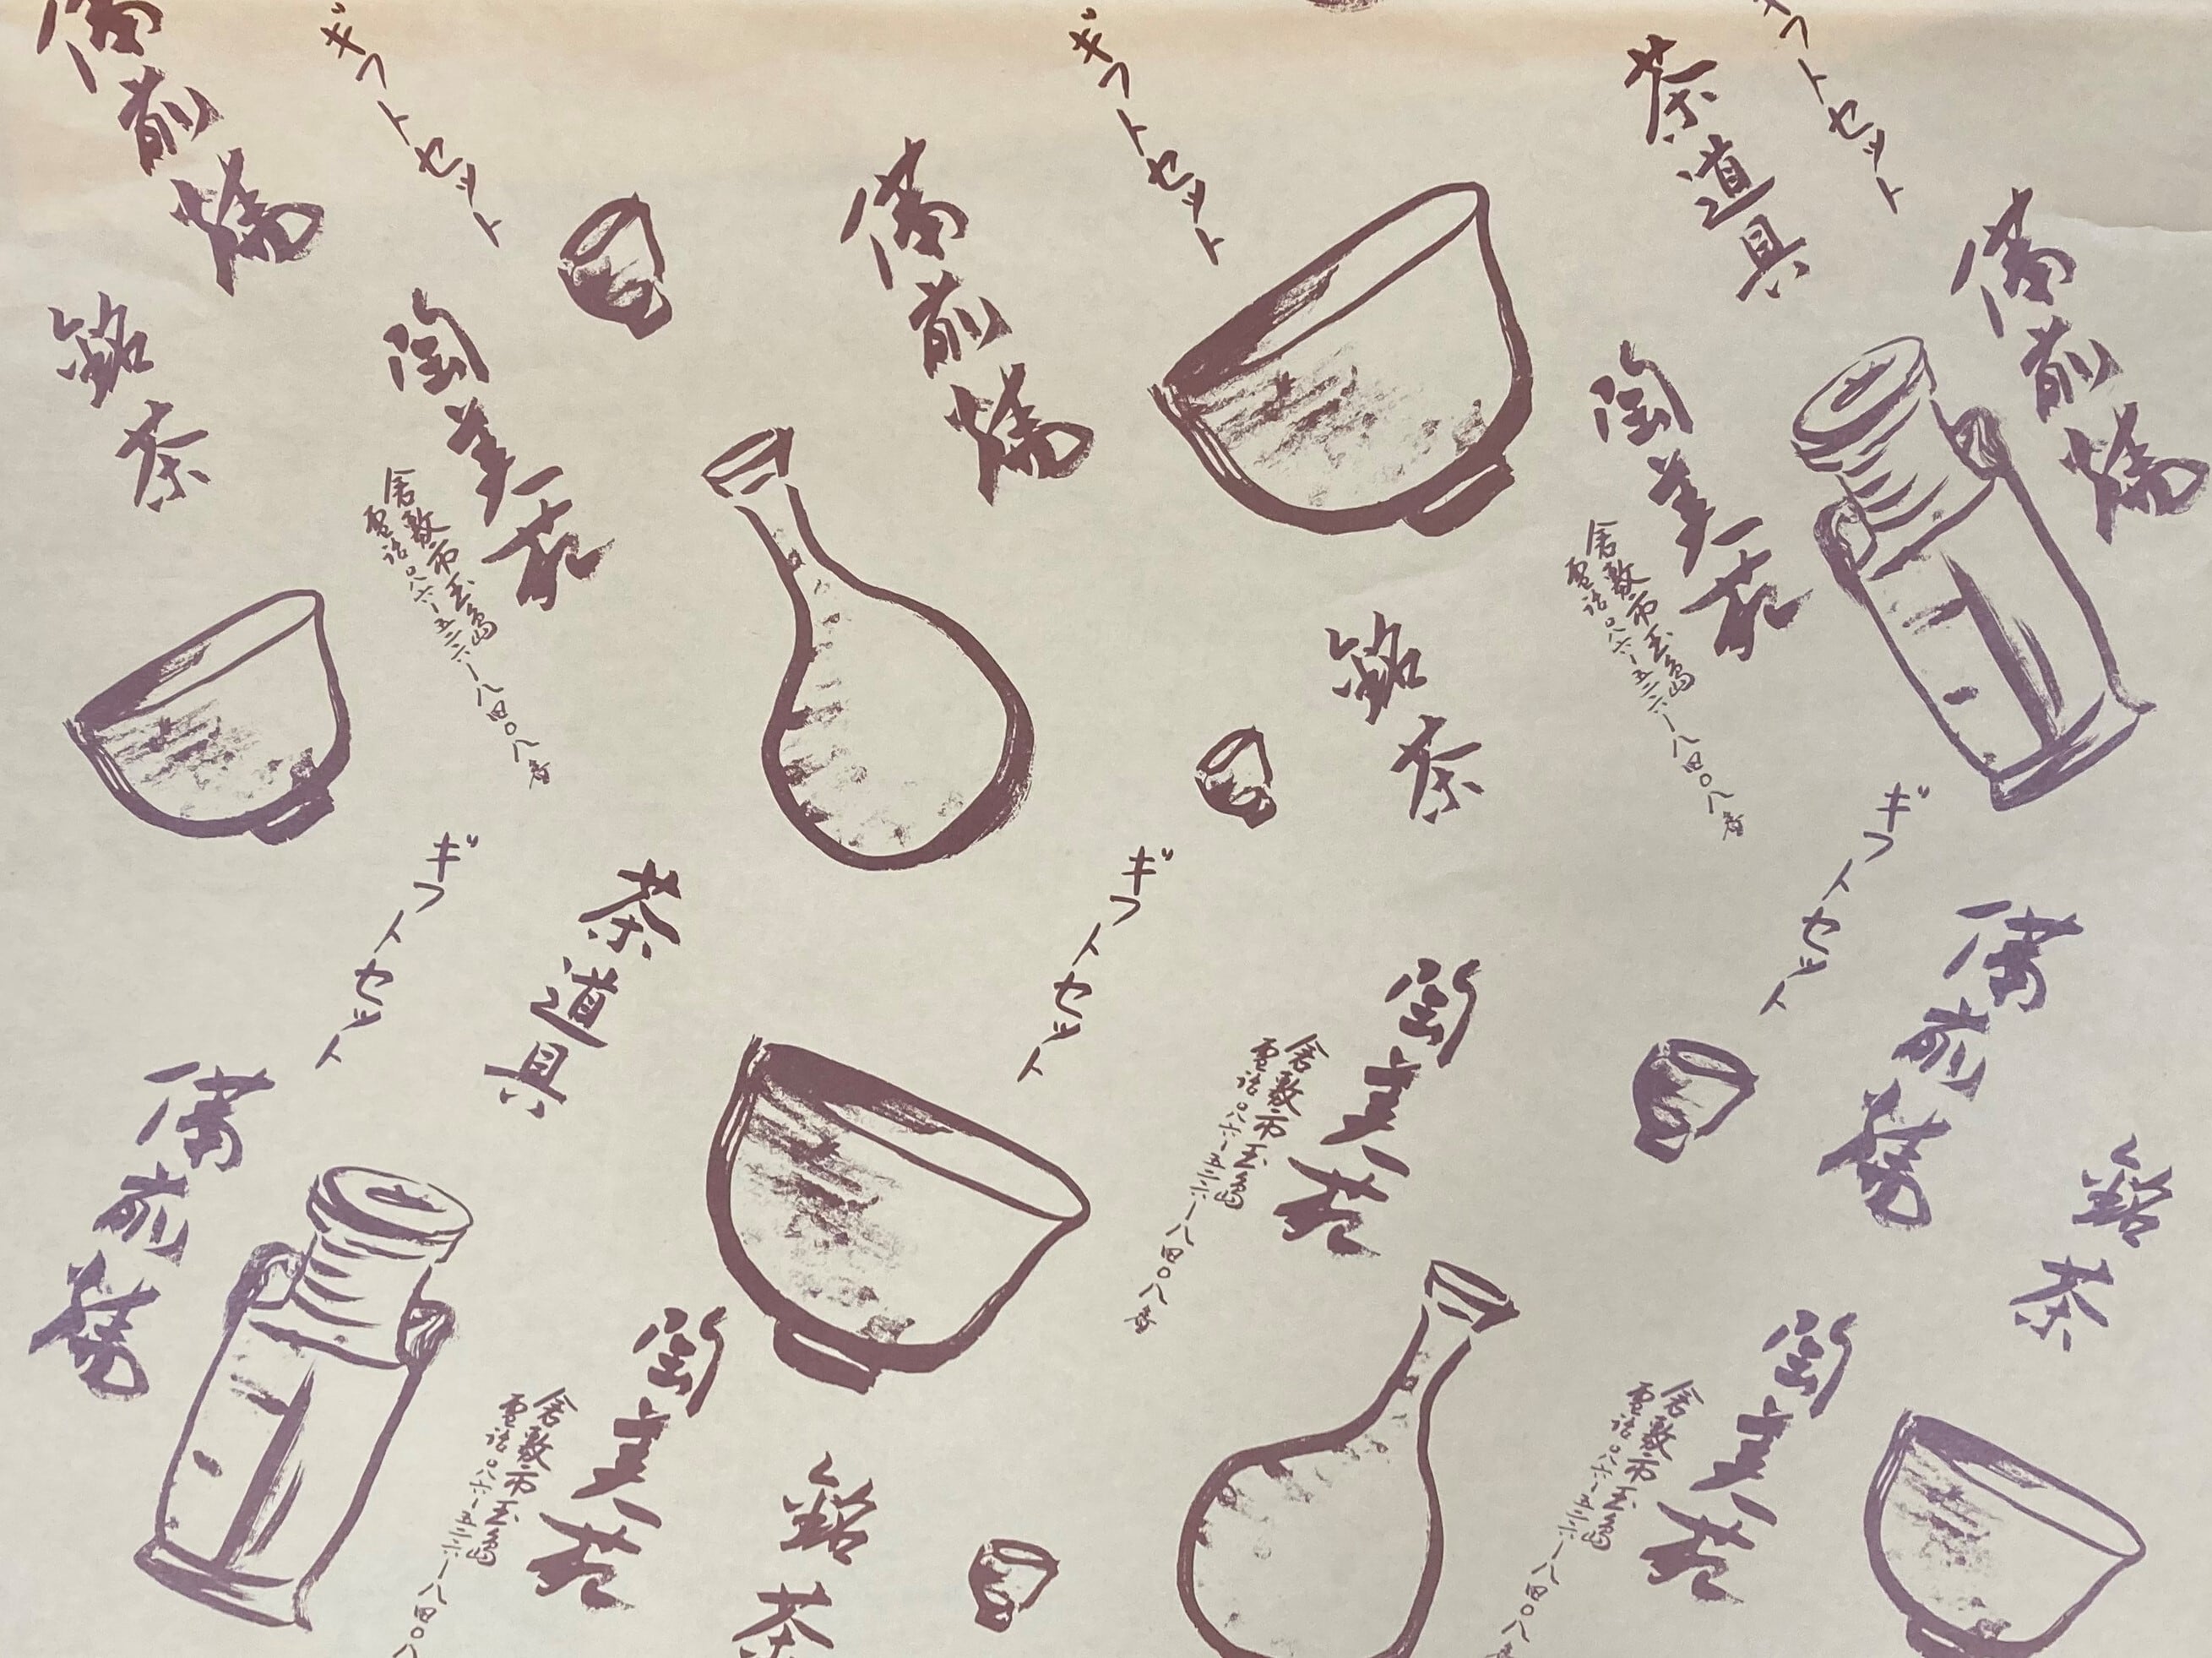 備前焼
ギフトセット
ギフトセット
茶道具
ギフトセット
備前焼
備前焼
銘茶
陶美苑
倉敷市玉島
電話〇八六ー五二六ー八四〇八番
陶美苑
倉敷市玉島
電話〇八六ー五二六ー八四〇八番
銘茶
ギフトセット
ギフトセット
ギフトセット
茶道具
備前焼
備前焼
陶美苑
倉敷市玉島
電話〇八六ー五二六ー八四〇八番
銘茶
陶美苑
倉敷市玉島
電話〇八六ー五二六ー八四〇八
陶美苑
倉敷市玉島
電話〇八六ー五二六ー八四〇八番
銘茶